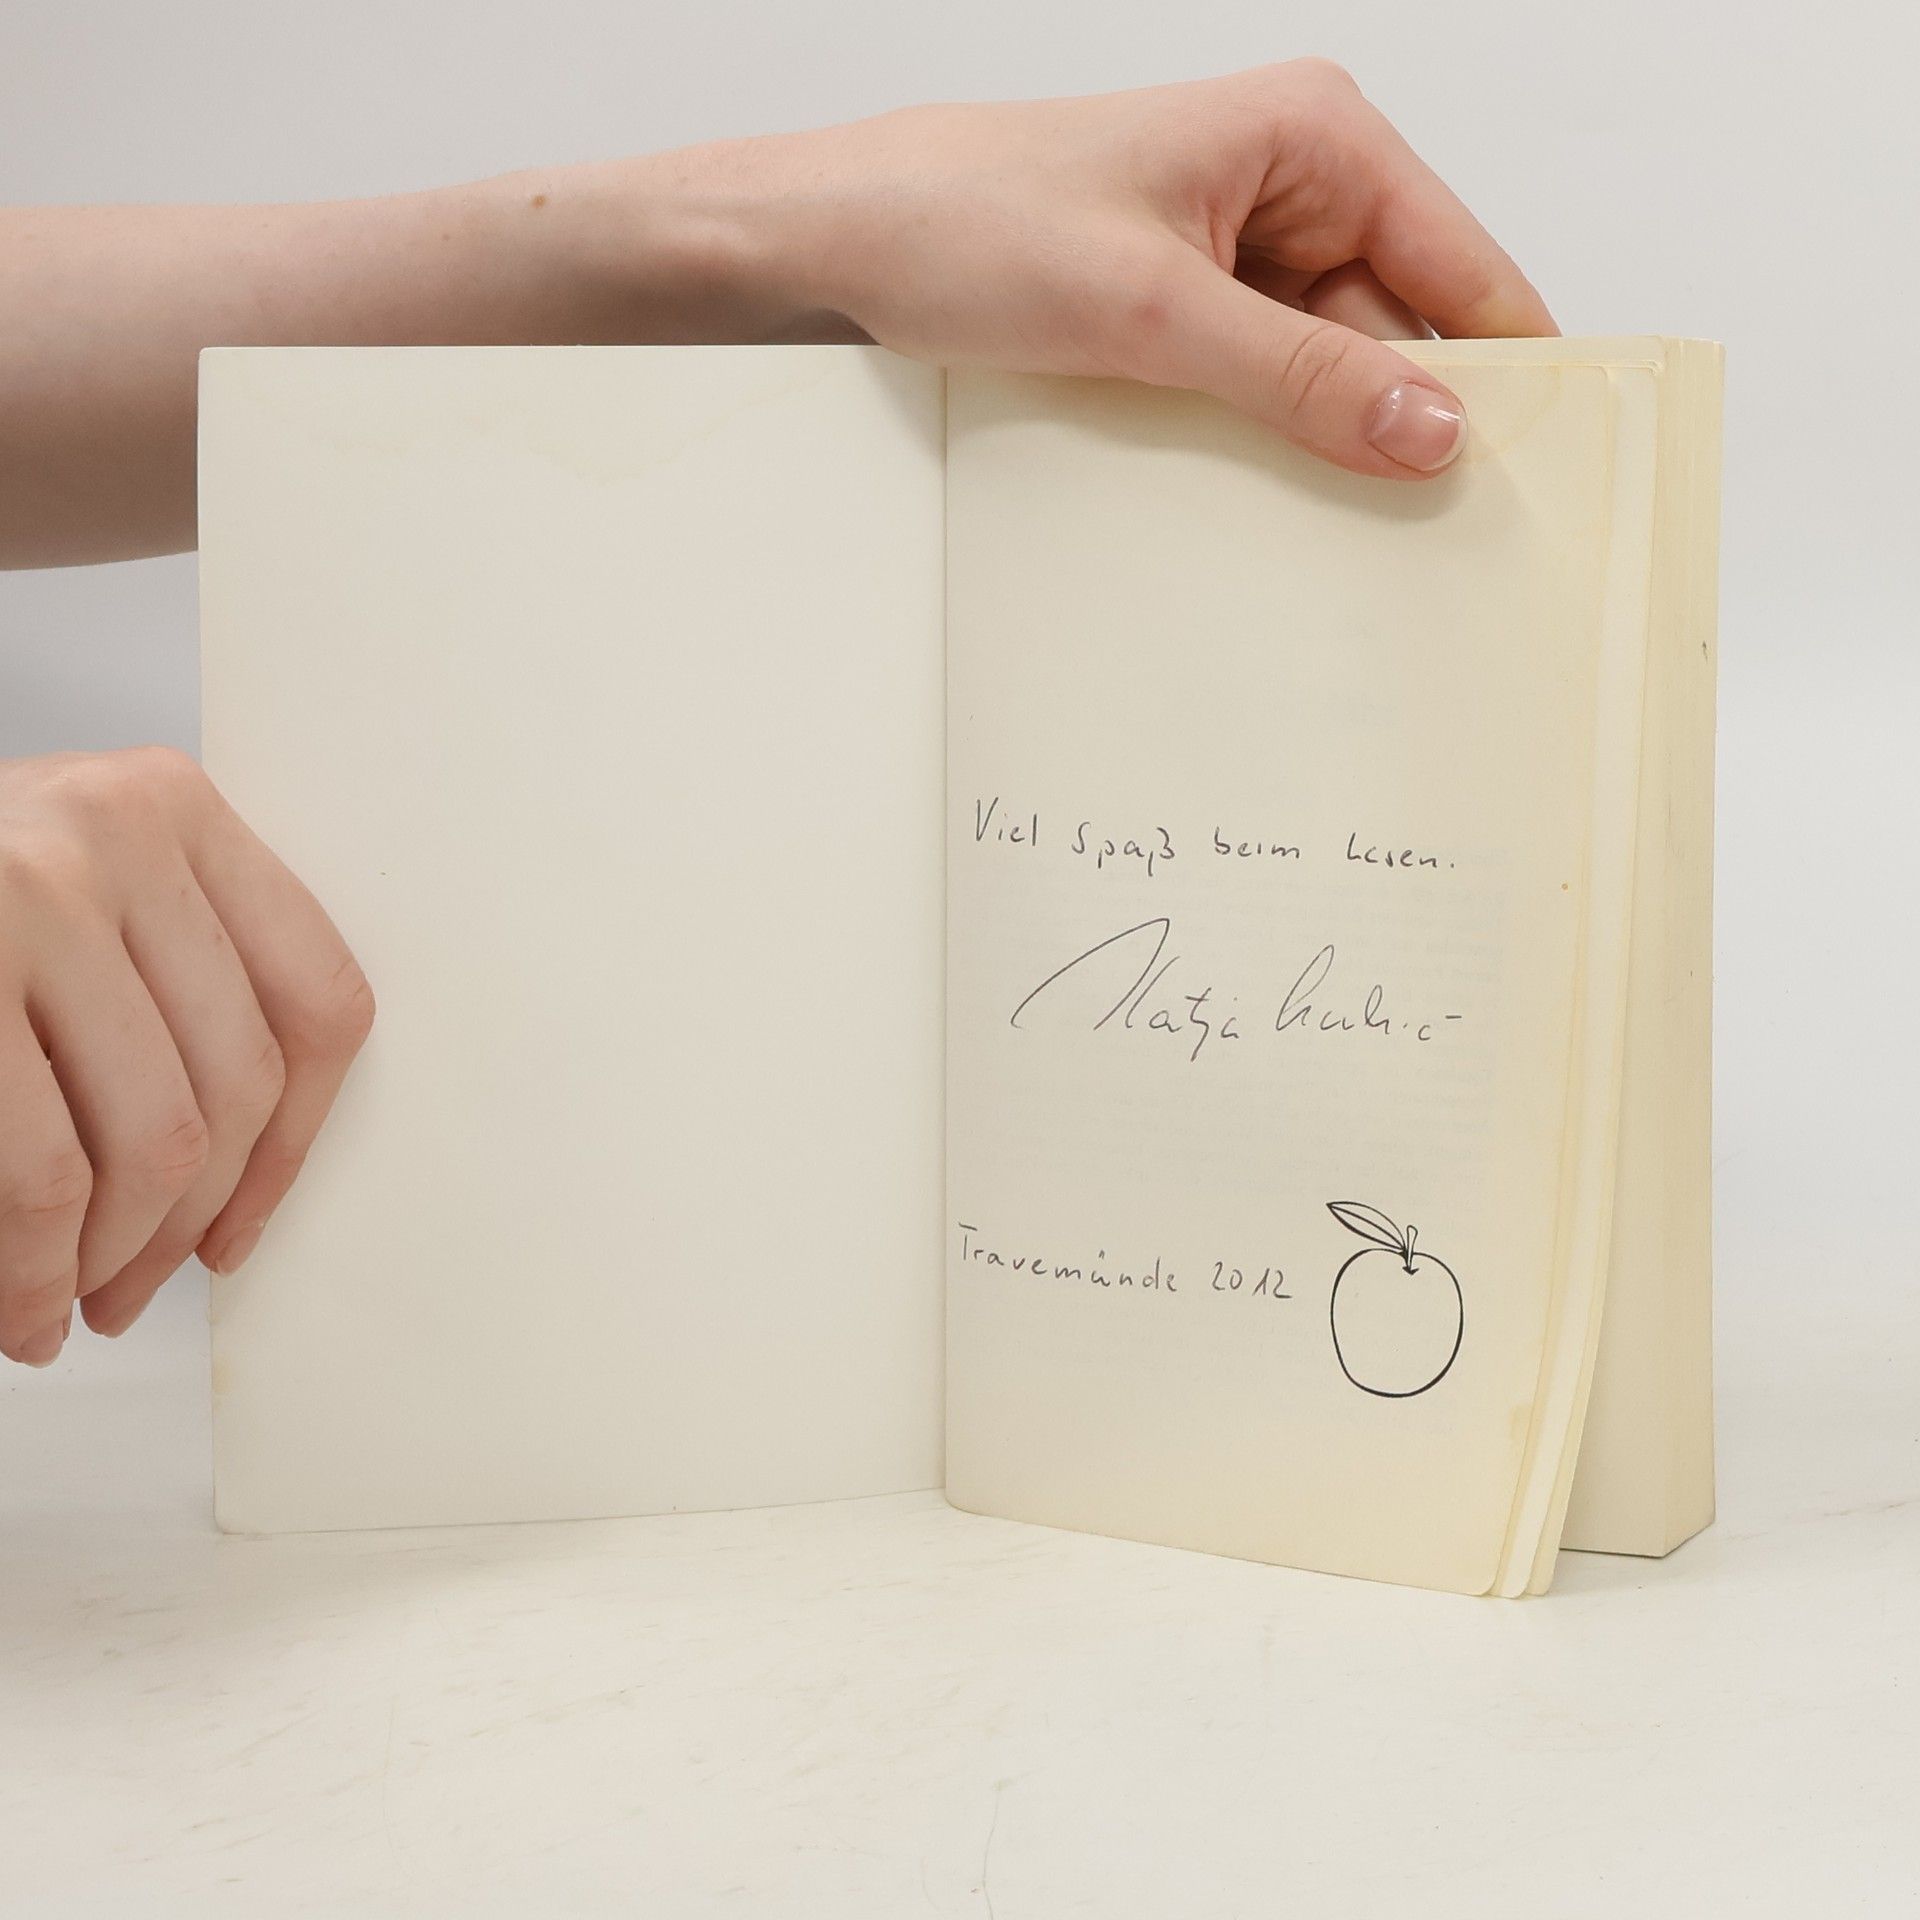 Viel Spaß beim Lesen.
Katja
Travemünde 2012